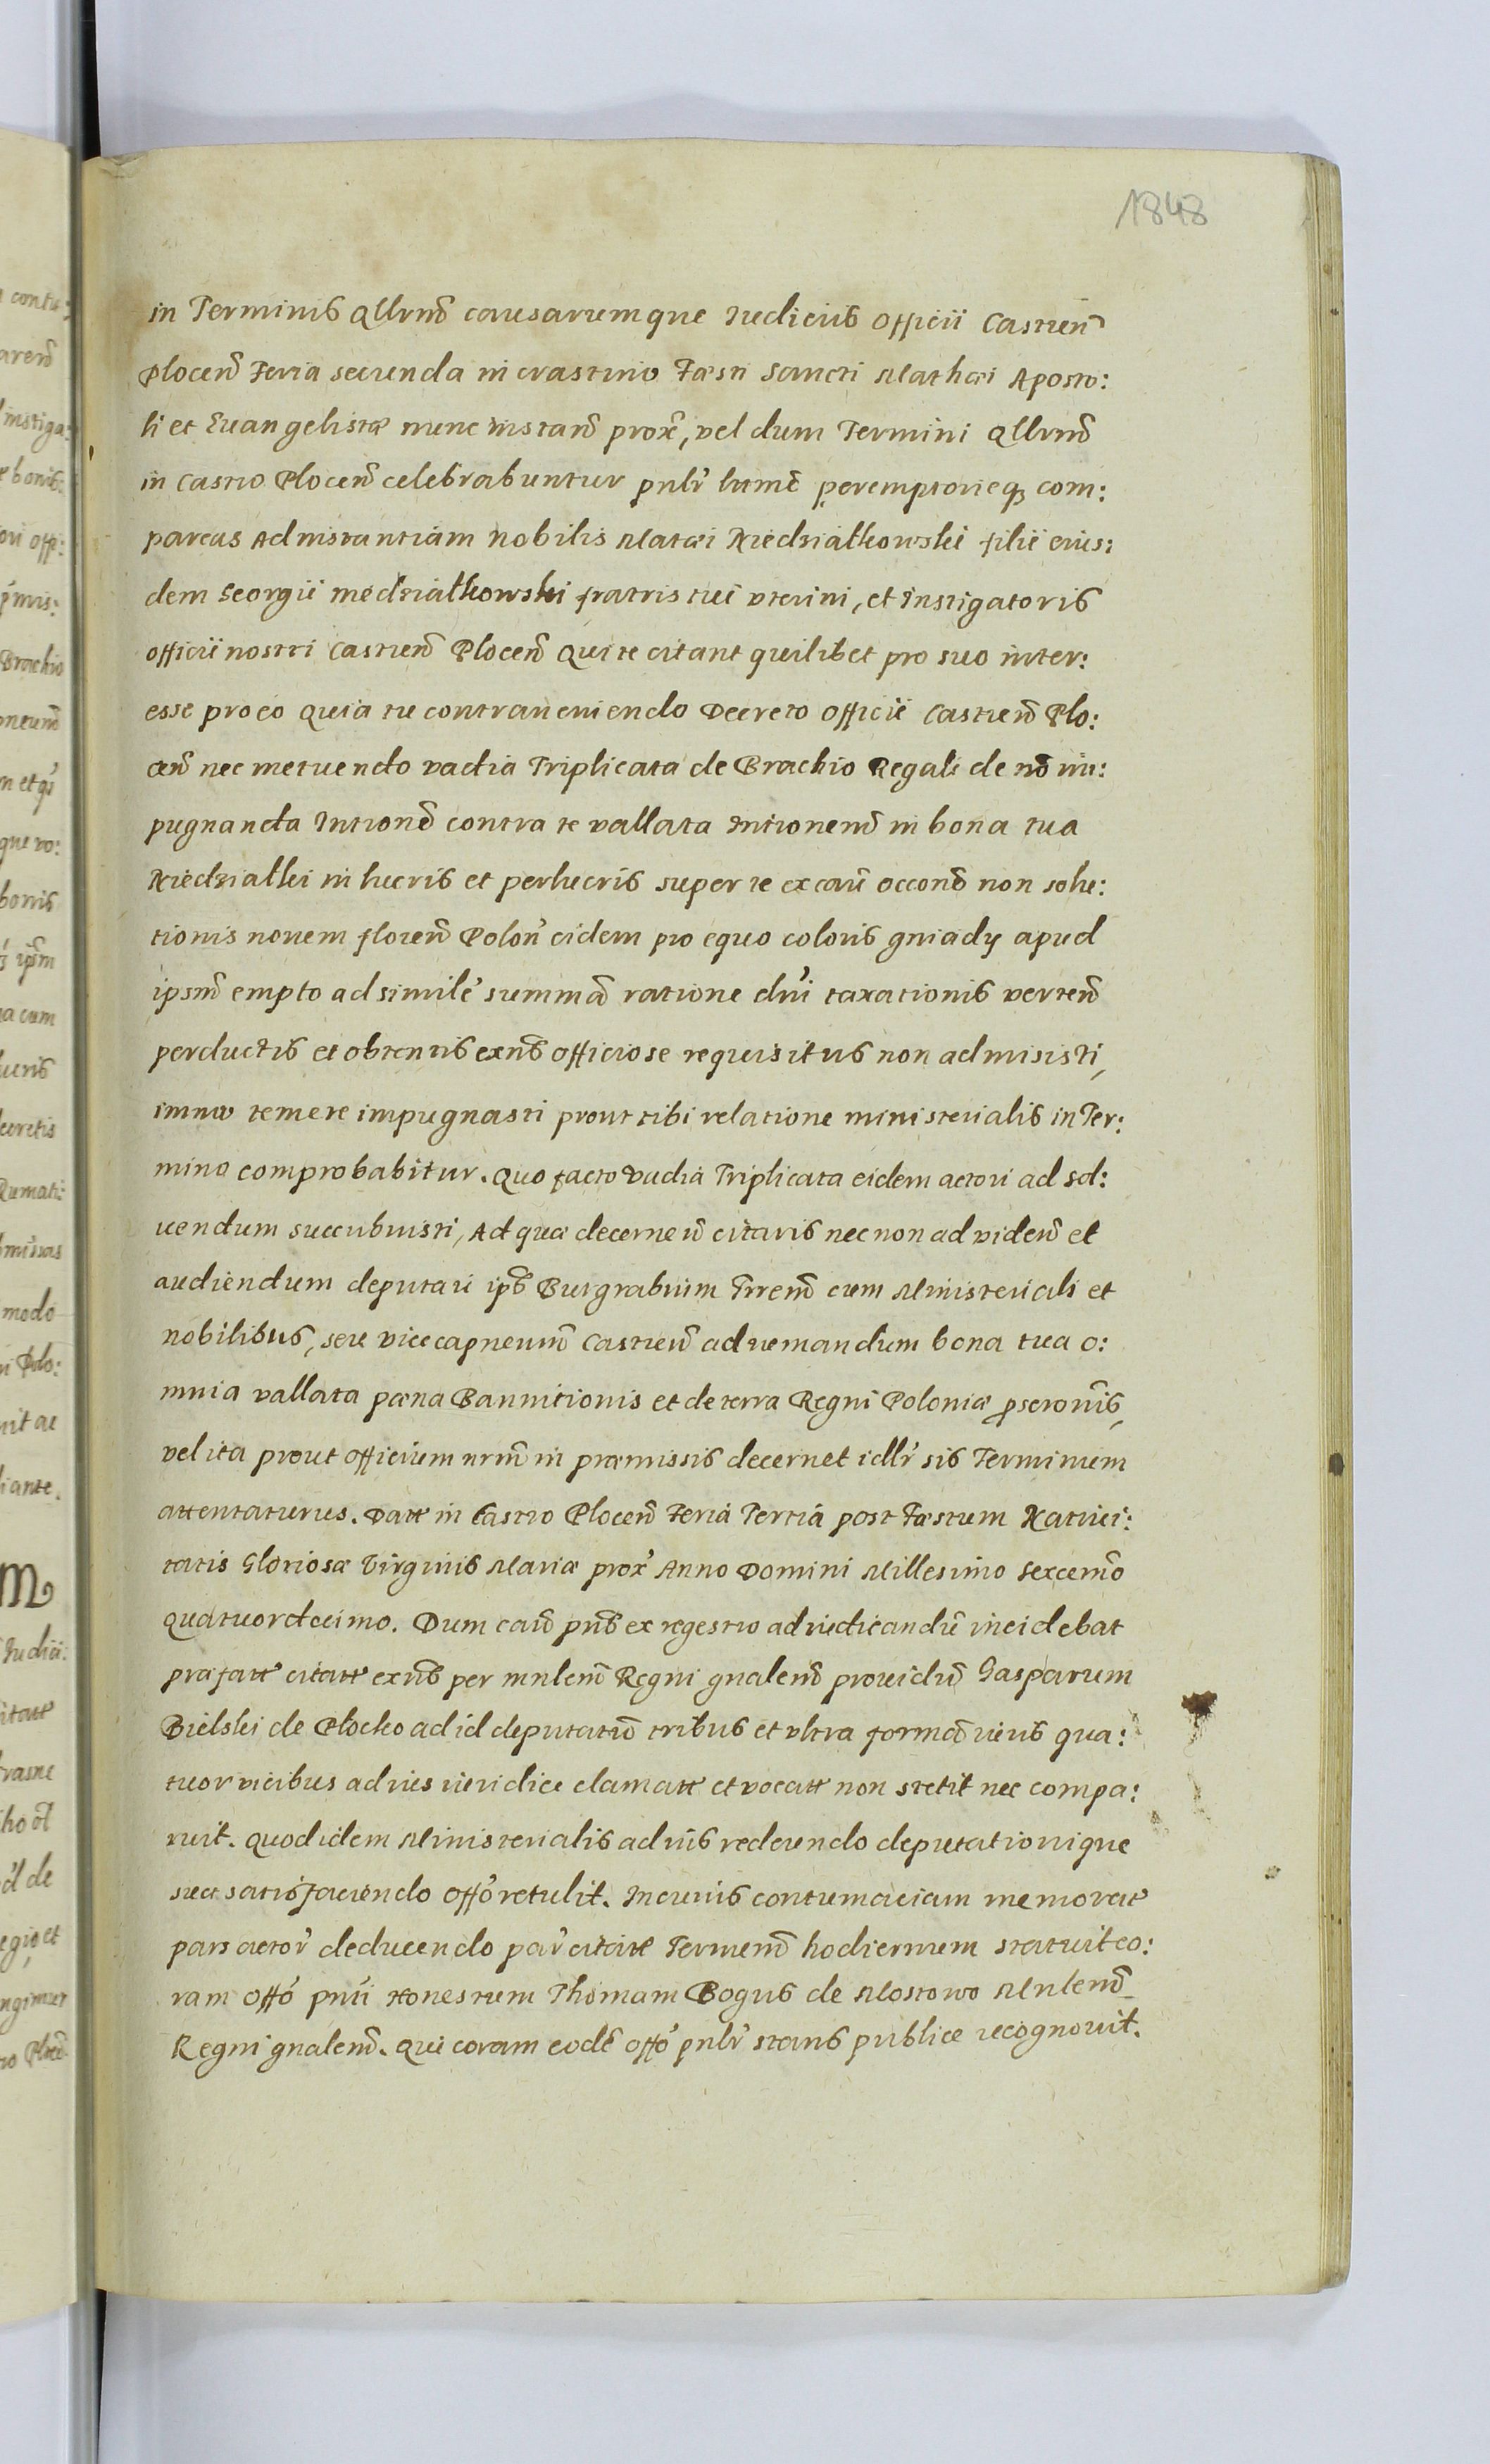 1848
in Terminis Qllrnḿ causarumque Iudiciis Officii Castren̄
Plocen̄ Feria secunda in crastino Fæsti Sancti Mathæi Aposto:
li et Euangelistæ nunc instan̄ prox̄, vel dum Termini Qllrnḿ
in Castro Plocen̄ celebrabuntur pnlr̄ hime peremptorieq3 com:
pareas Ad instantiam Nobilis Matæi Niedzialkowski filii eius:
dem Georgii niedzialkowski fratris tui vterini, et Instigatoris
officii nostri Castren̄ Plocen̄ Qui te citant quilibet pro suo inter:
esse pro eo Quia tu contraueniendo Decreto Officii Castren̄ Plo:
cen̄ nec metuendo vadia Triplicata de Brachio Regali de nō im:
pugnanda Intione contra te vallata Intionem in bona tua
Niedzialki in lucris et perlucris super te ex cau̅ occone non solu:
tionis nouem floren̄ Polon̄ eidem pro equo coloris gniady apud
ipsm̄ empto ad simile summā ratione dn̄i taxationis verten̄
perductis et obtentis exn̄s officiose requisitus non admisisti,
immo temere impugnasti prout tibi relatione ministerialis in Ter:
mino comprobabitur. Quo facto Vadia Triplicata eidem actori ad sol:
uendum succubuisti, Ad quæ decernen̄ citaris nec non ad viden̄ et
audiendum deputari ip̄s Burgrabium Trren̄ cum Ministeriali et
nobilibus, seu vicecapneum̄ Castren̄ ad uemandum bona tua o:
mnia vallata pæna Bannitionis et de terra Regni Poloniæ pscronis,
vel ita prout officium nrm̄ in præmissis decernet idlr̄ sis Terminum
attentaturus. Datt in Castro Plocen̄ Feria Tertia post Fæstum Natiui:
tatis Gloriosæ Virginis Mariæ prox̄ Anno Domini Millesimo Sexcemo
quatuordecimo. Dum cau̅ pn̄s ex regestro ad iudicandū incidebat
præfatt citatt exn̄s per mnlem̄ Regni gnalem̄ prouidū Gasparum
Bielski de Plocko ad id deputatū tribus et vltra formā iuris qua:
tuor vicibus ad ius iuridice clamatt et vocatt non stetit nec compa:
ruit. quod idem Ministerialis ad iūs redeundo deputationique
suæ satisfaciendo offo retulit. In cuius contumaciam memorat
pars actor̄ deducendo par̄ citatt Termenm̄ hodiernum statuit co:
ram offo pn̄ti Honestum Thomam Bogus de Mostowo Mnlem̄
Regni gnalem̄. Qui coram eodē offo pnlr̄ stans publice recognouit.